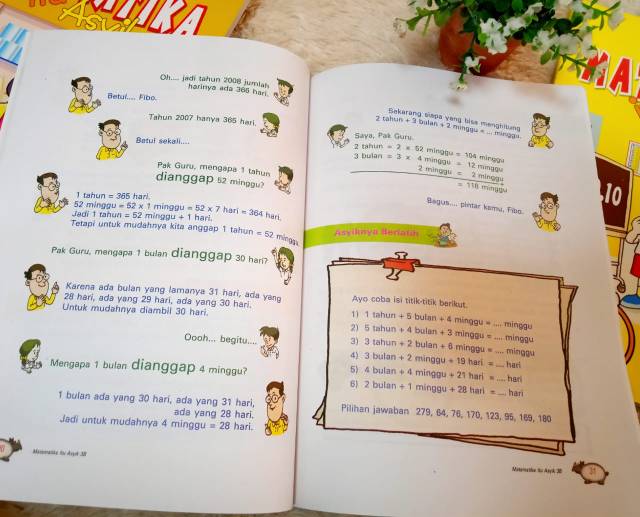 Asyik
Oh.... jadi tahun 2008 jumlah
harinya ada 366 hari.
Betul.... Fibo.
Tahun 2007 hanya 365 hari.
Betul sekali....
Pak Guru, mengapa 1 tahun
dianggap 52 minggu?
1 tahun = 365 hari.
52 minggu = 52 x 1 minggu = 52 x 7 hari = 364 hari.
Jadi 1 tahun = 52 minggu + 1 hari.
Tetapi untuk mudahnya kita anggap 1 tahun = 52 minggu
Pak Guru, mengapa 1 bulan dianggap 30 hari?
Karena ada bulan yang lamanya 31 hari, ada yang
28 hari, ada yang 29 hari, ada yang 30 hari.
Untuk mudahnya diambil 30 hari.
Oooh... begitu....
Mengapa 1 bulan dianggap 4 minggu?
1 bulan ada yang 30 hari, ada yang 31 hari,
ada yang 28 hari.
Jadi untuk mudahnya 4 minggu = 28 hari.
Matematika itu Asyik 3B
Sekarang siapa yang bisa menghitung
2 tahun + 3 bulan + 2 minggu = ... minggu.
Saya, Pak Guru.
2 tahun = 2 x 52 minggu = 104 minggu
3 bulan = 3 x 4 minggu = 12 minggu
2 minggu = 2 minggu
+
= 118 minggu
Bagus.... pintar kamu, Fibo.
Asyiknya Berlatih
Ayo coba isi titik-titik berikut.
1) 1 tahun + 5 bulan + 4 minggu = .... minggu
2) 5 tahun + 4 bulan + 3 minggu = .... minggu
3) 3 tahun + 2 bulan + 6 minggu = .... minggu
4) 3 bulan + 2 minggu + 19 hari = .... hari
5) 4 bulan + 4 minggu + 21 hari = .... hari
6) 2 bulan + 1 minggu + 28 hari = .... hari
Pilihan jawaban 279, 64, 76, 170, 123, 95, 169, 180
Matematika itu Asyik 3B
31
MAT